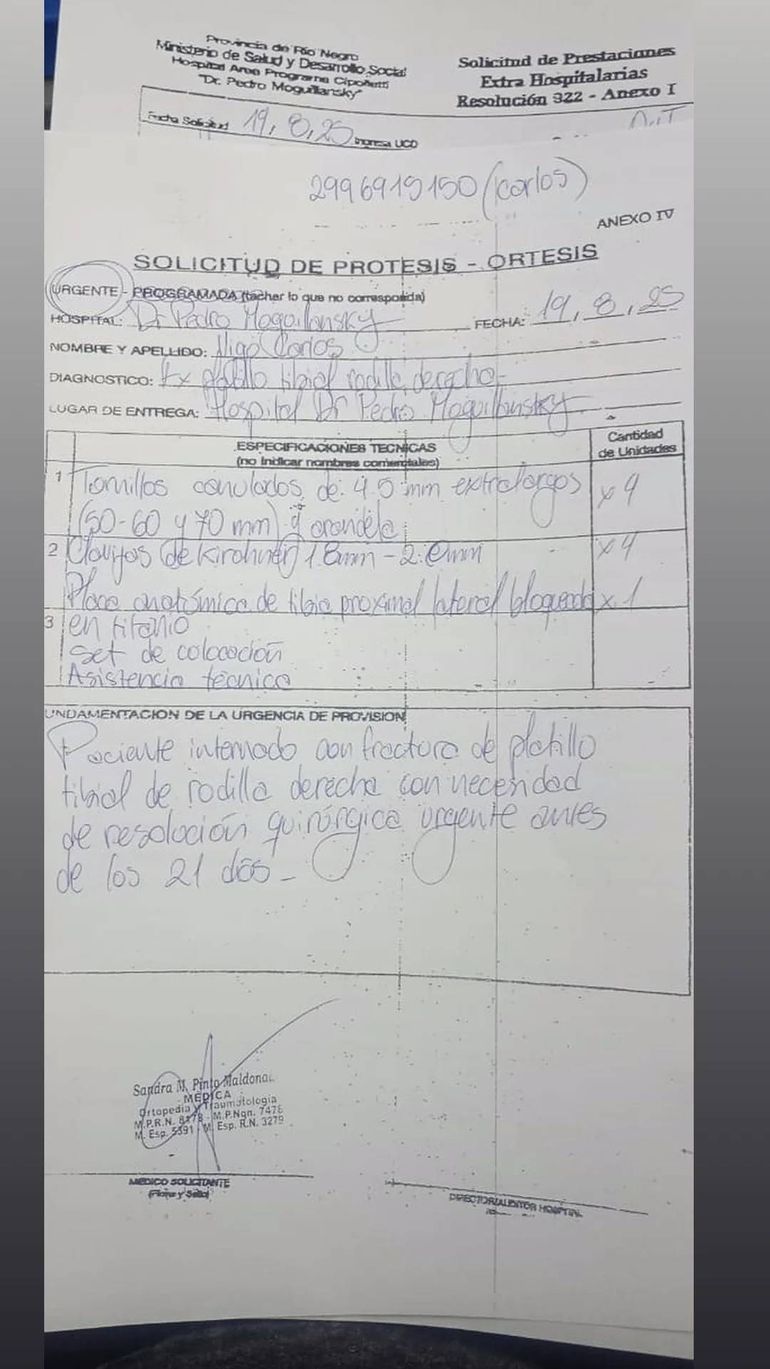 Provincia de Río Negro
Ministerio de Salud y Desarrollo Social
Hospital Area Programa Cipolletti
"Dr. Pedro Moguillansky"
Solicitud de Prestaciones
Extra Hospitalarias
Resolución 322 - Anexo I
Fecha Solicitud 19, 8, 25 Ingresa UCD
2996919150 (Carlos)
ANEXO IV
SOLICITUD DE PROTESIS - ORTESIS
URGENTE - PROGRAMADA (tachar lo que no corresponda)
HOSPITAL: Dr Pedro Moguillansky FECHA: 19, 8, 25
NOMBRE Y APELLIDO: Carlos
DIAGNOSTICO: Fx platillo tibial rodilla derecha-
LUGAR DE ENTREGA: Hospital Dr Pedro Moguillansky-
ESPECIFICACIONES TECNICAS
(no indicar nombres comerciales)
Cantidad
de Unidades
1 Tornillos canulados de 4.5 mm extralargos x 4
(50-60 y 70 mm) y arandela
2 Clavijas (de Kirchner) 1.8mm - 2.0mm x 4
Placa anatómica de tibia proximal lateral bloqueada x 1
3 en titanio
set de colocación
Asistencia técnica
UNDAMENTACION DE LA URGENCIA DE PROVISION
Paciente internado con fractura de platillo
tibial de rodilla derecha con necesidad
de resolución quirúrgica urgente antes
de los 21 días-
Sandra M. Pinto Maldona
MÉDICA
Ortopedia y Traumatología
M.P.R.N. 8178 - M.P.Nqn. 7476
M. Esp. 5391 - M. Esp. R.N. 3279
MEDICO SOLICITANTE
(Firma y Sello)
DIRECTOR/AUDITOR HOSPITAL